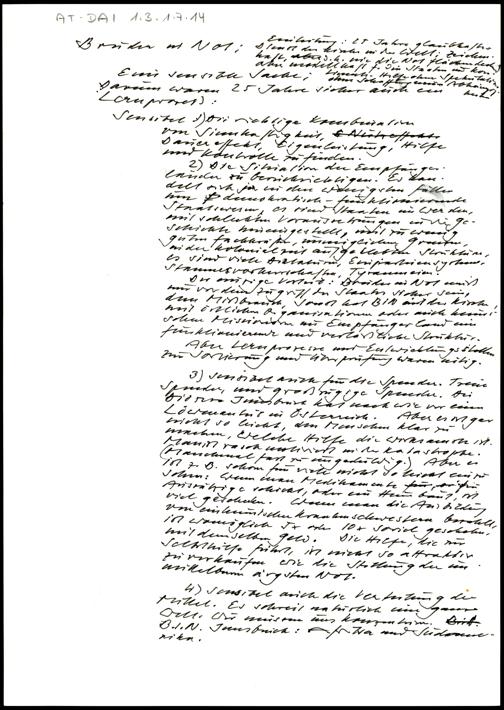 AT-DAI 1.3.1.7.14
Bruder in Not:
Einleitung: 25 Jahre glaubhafter
Dienst der Kirche in der Welt; Zeichen-
Eine sensible Sache;
Darum waren 25 Jahre sicher auch ein
Lernprozess:
Sensibel 1) Die richtige Kombination
von
Dauereffekt, Eigenleistung, Hilfe
und Kontrolle zu finden.
2) Die Situation der Empfänger-
länder zu berücksichtigen. Es han-
delt sich ja in den wenigsten Fällen
um demokratisch-funktionierende
Staatswesen, es sind Staaten im Werden,
mit schlechten Voraussetzungen in die Ge-
schichte hineingestellt, mit zu wenig
guten Fachkräften, unmöglichen Grenzen,
in der Kolonialzeit aufgelösten Strukturen,
es sind viele Diktaturen,
Stammesvorherrschaften, Tyranneien.
Der einzige Vorteil: Bruder in Not muß
nur vor dem Zugriff des Staates sicher sein,
dem Mißbrauch, sonst hat BIN mit den Kirchen,
mit örtlichen Organisationen oder auch heimi-
schen Missionaren im Empfängerland
funktionierende und verlässliche Struktur.
Aber Lernprozesse und Entwicklungsstellen
zur Sortierung und Überprüfung waren nötig.
3) Sensibel auch für die Spender. Treue
Spender, und großzügige Spender. Die
Diözese Innsbruck hat nach wie vor einen
Löwenanteil in Österreich. Aber es ist gar
nicht so leicht, den Menschen klar zu
machen, welche Hilfe die wirksamste ist.
Man ist rasch motiviert in der Katastrophe.
(Manchmal fast zu ungeduldig.) Aber es
ist z.B. schon für viele nicht so leicht einzu-
sehen: Wenn man Medikamente für
Aussätzige schickt, oder ein Heim baut, ist
viel geschehen. Wenn man die Ausbildung
von einheimischen Krankenschwestern bezahlt,
ist womöglich 5x oder 10x soviel geschehen,
mit demselben Geld. Die Hilfe, die zur
Selbsthilfe führt, ist nicht so attraktiv
zu verkaufen wie die Stillung der un-
mittelbaren ärgsten Not.
4) Sensibel auch die Verteilung der
Mittel. Es schreit natürlich eine ganze
Welt. Wir müssen uns konzentrieren.
B.i.N. Innsbruck: Afrika und Südame-
rika.